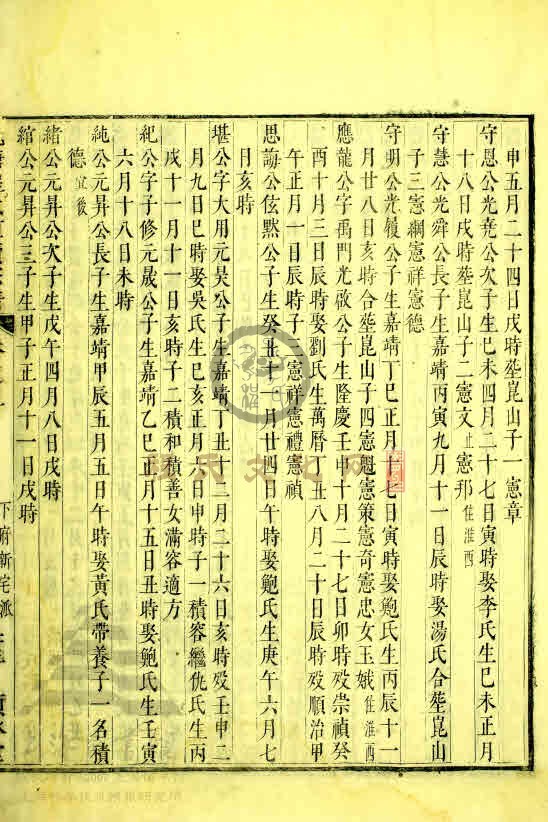 申五月二十四日戌時塟崑山子一憲章
守恩公光堯公次子生巳未四月二十七日寅時娶李氏生巳未正月
十八日戌時塟崑山子二憲文止憲邦住淮西
守慧公光舜公長子生嘉靖丙寅九月十一日辰時娶湯氏合塟崑山
子三憲綱憲祥憲德
守明公光嶺公子生嘉靖丁巳正月十七日寅時娶鮑氏生丙辰十一
月廿八日亥時合塟崑山子四憲魁憲策憲奇憲忠女玉娥住淮西
應龍公字禹門光啟公子生隆慶壬申十月二十七日卯時歿崇禎癸
酉十月三日辰時娶劉氏生萬曆丁丑八月二十日辰時歿順治甲
午正月一日辰時子一憲祥憲禮憲禎
思誨公伭黙公子生癸丑十一月廿四日午時娶鮑氏生庚午六月七
日亥時
堪公字大用元昊公子生嘉靖丁丑十二月二十六日亥時歿壬申二
月九日巳時娶吳氏生巳亥正月六日申時子一積容繼仇氏生丙
戌十一月十一日亥時子二積和積善女滿容適方
紀公字子修元晟公子生嘉靖乙巳正月十五日丑時娶鮑氏生壬寅
六月十八日未時
純公元昇公長子生嘉靖甲辰五月五日午時娶黃氏帶養子一名積
德宜後
緒公元昇公次子生戊午四月八日戌時
綰公元昇公三子生甲子正月十一日戌時
下府新宅派